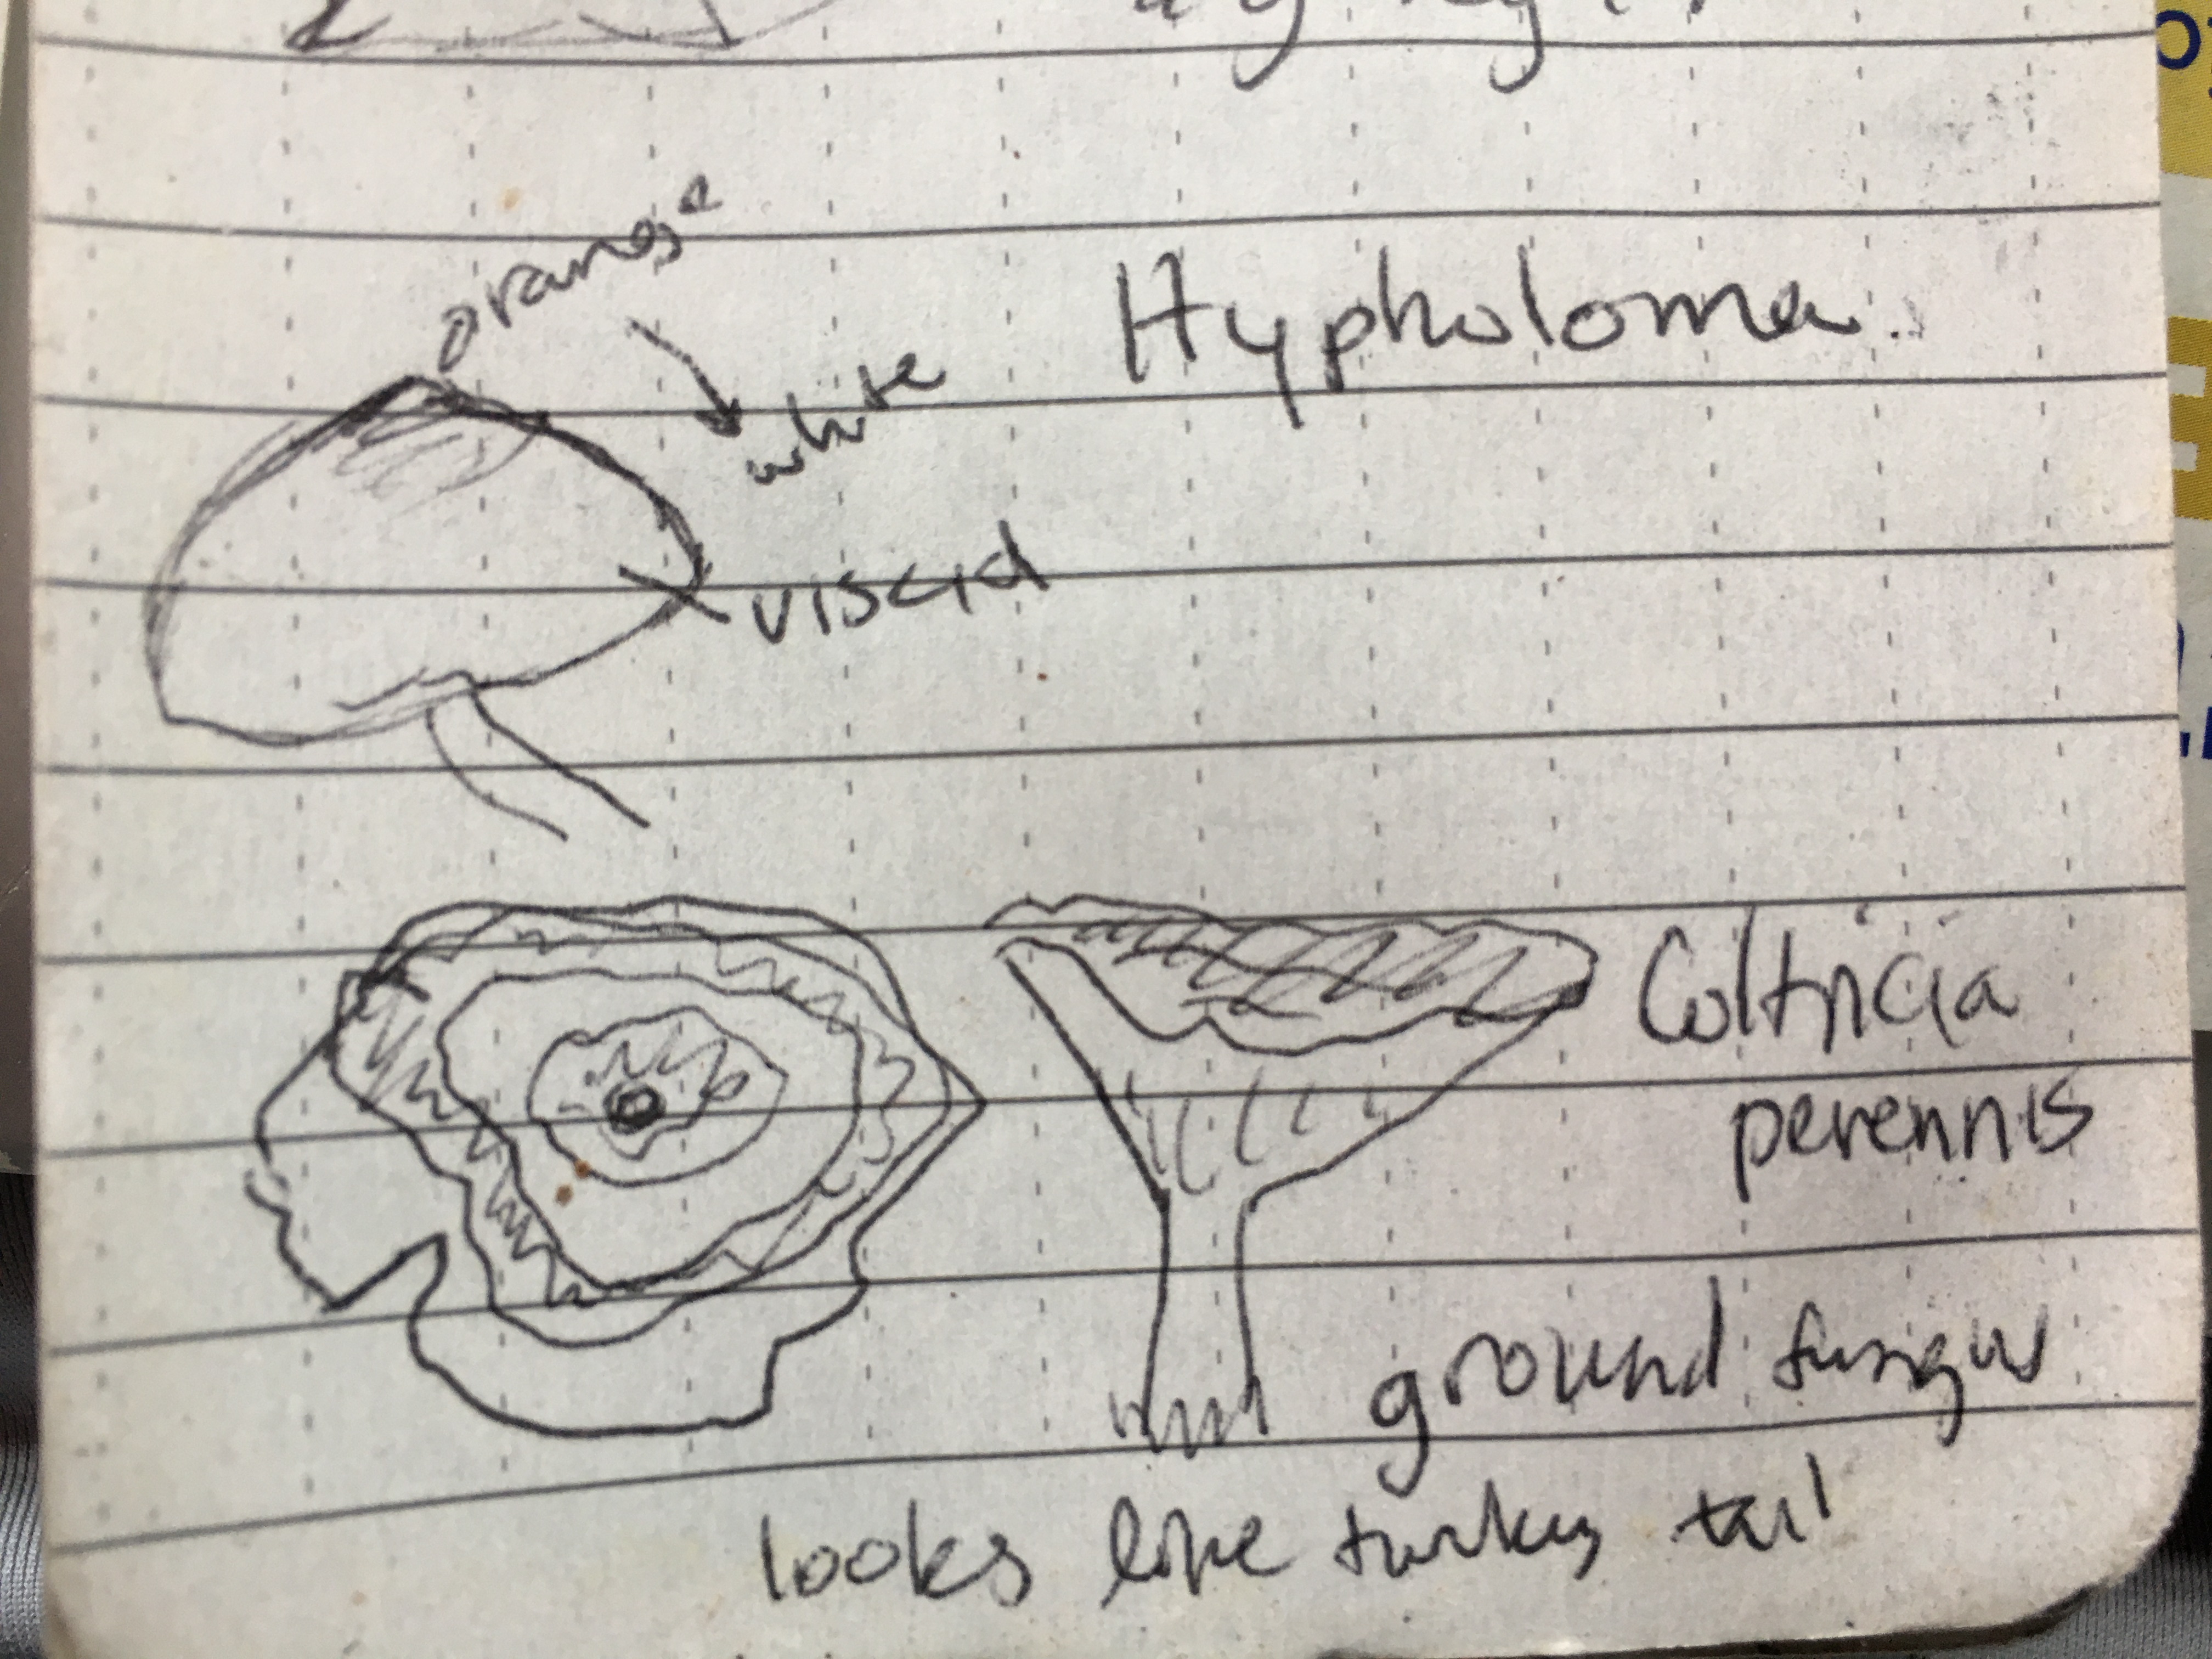 orange
white
Hypholoma
viscid
Coltricia
perennis
ground fungus
looks like turkey tail